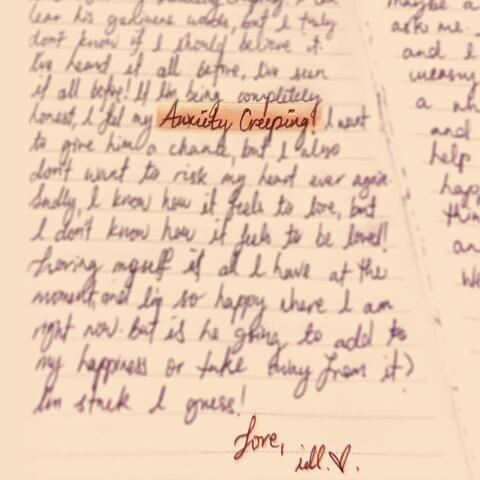 hear his genuine words, but I truly
don't know if I should believe it.
I've heard it all before, I've seen
it all before! If I'm being completely
honest, I feel my Anxiety Creeping! I want
to give him a chance, but I also
don't want to risk my heart ever again.
Sadly, I know how it feels to love, but
I don't know how it feels to be loved!
Loving myself is all I have at the
moment, and I'm so happy where I am
right now. But is he going to add to
my happiness or take away from it?
I'm stuck I guess!
Love,
ill.♡.
maybe a
ask me.
and I
a
and
help
happ
thin
an
We